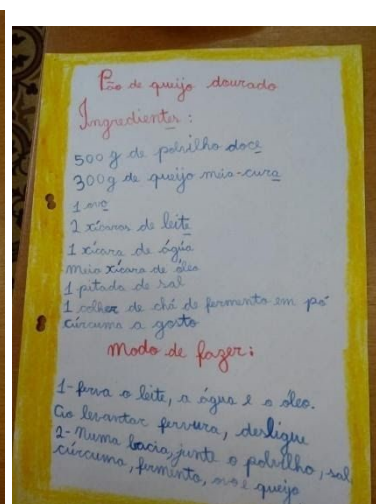 Pão de queijo dourado
Ingredientes :
500 g de polvilho doce
300g de queijo meia-cura
1 ovo
2 xícaras de leite
1 xícara de água
meia xícara de óleo
1 pitada de sal
1 colher de chá de fermento em pó
cúrcuma a gosto
modo de fazer:
1-ferva o leite, a água e o óleo.
Ao levantar fervura, desligue
2-Numa bacia, junte o polvilho, sal
cúrcuma, fermento, ovo e queijo